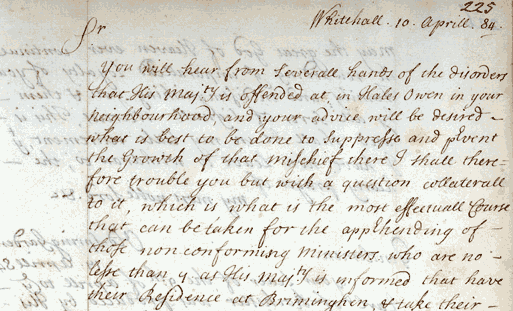 225
Whitehall. 10. Aprill. 84.
Sr
You will hear from severall hands of the disorders
that His Majty is offended at in Hales Owen in your
neighbourhood, and your advice will be desired -
what is best to be done to suppresse and pvent
the Growth of that mischief there I shall there-
fore trouble you but with a question collaterall
to it, which is what is the most effectuall Course
that can be taken for the apphending of -
those non conforming Ministers, who are no -
lesse than 4 as His Majty is informed that have
their Residence at Brimingham & take their -